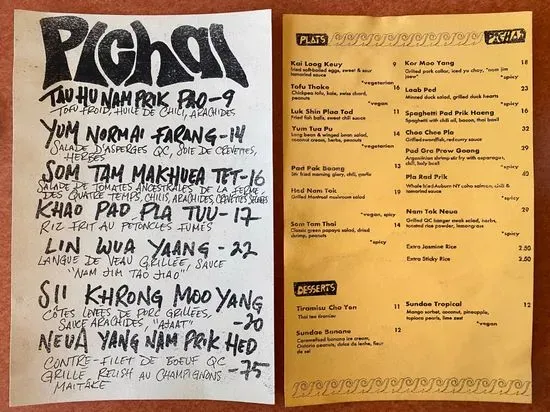 Pichai
TAU HU NAM PRIK PAO-9
TOFU FROID, HUILE DE CHILI, ARACHIDES
YUM NORMAI FARANG-14
SALADE D'ASPERGES QC, SOIE DE CREVETTES,
HERBES
SOM TAM MAKHUEA TET-16
SALADE DE TOMATES ANCESTRALES DE LA FERME
DES QUATRE TEMPS, CHILIS, ARACHIDES, CREVETTES SÉCHÉES
KHAO PAD PLA TUU-17
RIZ FRIT AU PETONCLES FUMÉS
LIN WUA YAANG-22
LANGUE DE VEAU GRILLÉE, SAUCE
"NAM JIM TAO JIAO"
SII KHRONG MOO YANG
-20
CÔTES LEVÉES DE PORC GRILLÉES,
SAUCE ARACHIDES, "AJAAT"
NEUA YANG NAM PRIK HED
-75
CONTRE-FILET DE BOEUF QC
GRILLÉ RELISH AU CHAMPIGNONS
MAÏTAKE
PLATS
PICHAI
Kai Loog Keuy 9
fried soft-boiled eggs, sweet & sour
tamarind sauce
*vegetarian
Tofu Thoke 16
Chickpea tofu, kale, swiss chard,
peanut
*vegan
Luk Shin Plaa Tod 11
Fried fish balls, sweet chili sauce
Yum Tua Pu
Long bean & winged bean salad,
coconut cream, herbs, peanuts
*vegetarian
Pad Pak Boong 13
Stir fried morning glory, chili, garlic
Hed Nam Tok 19
Grilled Montreal mushroom salad
*vegan, spicy
Som Tam Thai 14
Classic green papaya salad, dried
shrimp, peanuts
*spicy
Kor Moo Yang 18
Grilled pork collar, iced yu choy, *nam jim
*spicy
Laab Ped 23
Minced duck salad, grilled duck hearts
*spicy
Spaghetti Pad Prik Haeng 16
Spaghetti with chili oil, bacon, thai basil
Choo Chee Pla 32
Grilled swordfish, red curry sauce
Pad Gra Prow Goong 29
Argentinian shrimp stir fry with asparagus,
chili, holy basil
*spicy
Pla Rad Prik 40
Whole fried Auburn NY coho salmon, chili &
tamarind sauce
*spicy
Nam Tok Neua 29
Grilled QC hanger steak salad, herbs,
toasted rice powder, lemongrass
*spicy
Extra Jasmine Rice 2.50
Extra Sticky Rice 2.50
DESSERTS
Tiramisu Cha Yen 11
Thai tea tiramisu
Sundae Banane 12
Caramelised banana ice cream,
Ontario peanuts, dulce de leche, fleur
de sel
Sundae Tropical 12
Mango sorbet, coconut, pineapple,
tapioca pearls, lime zest
*vegan